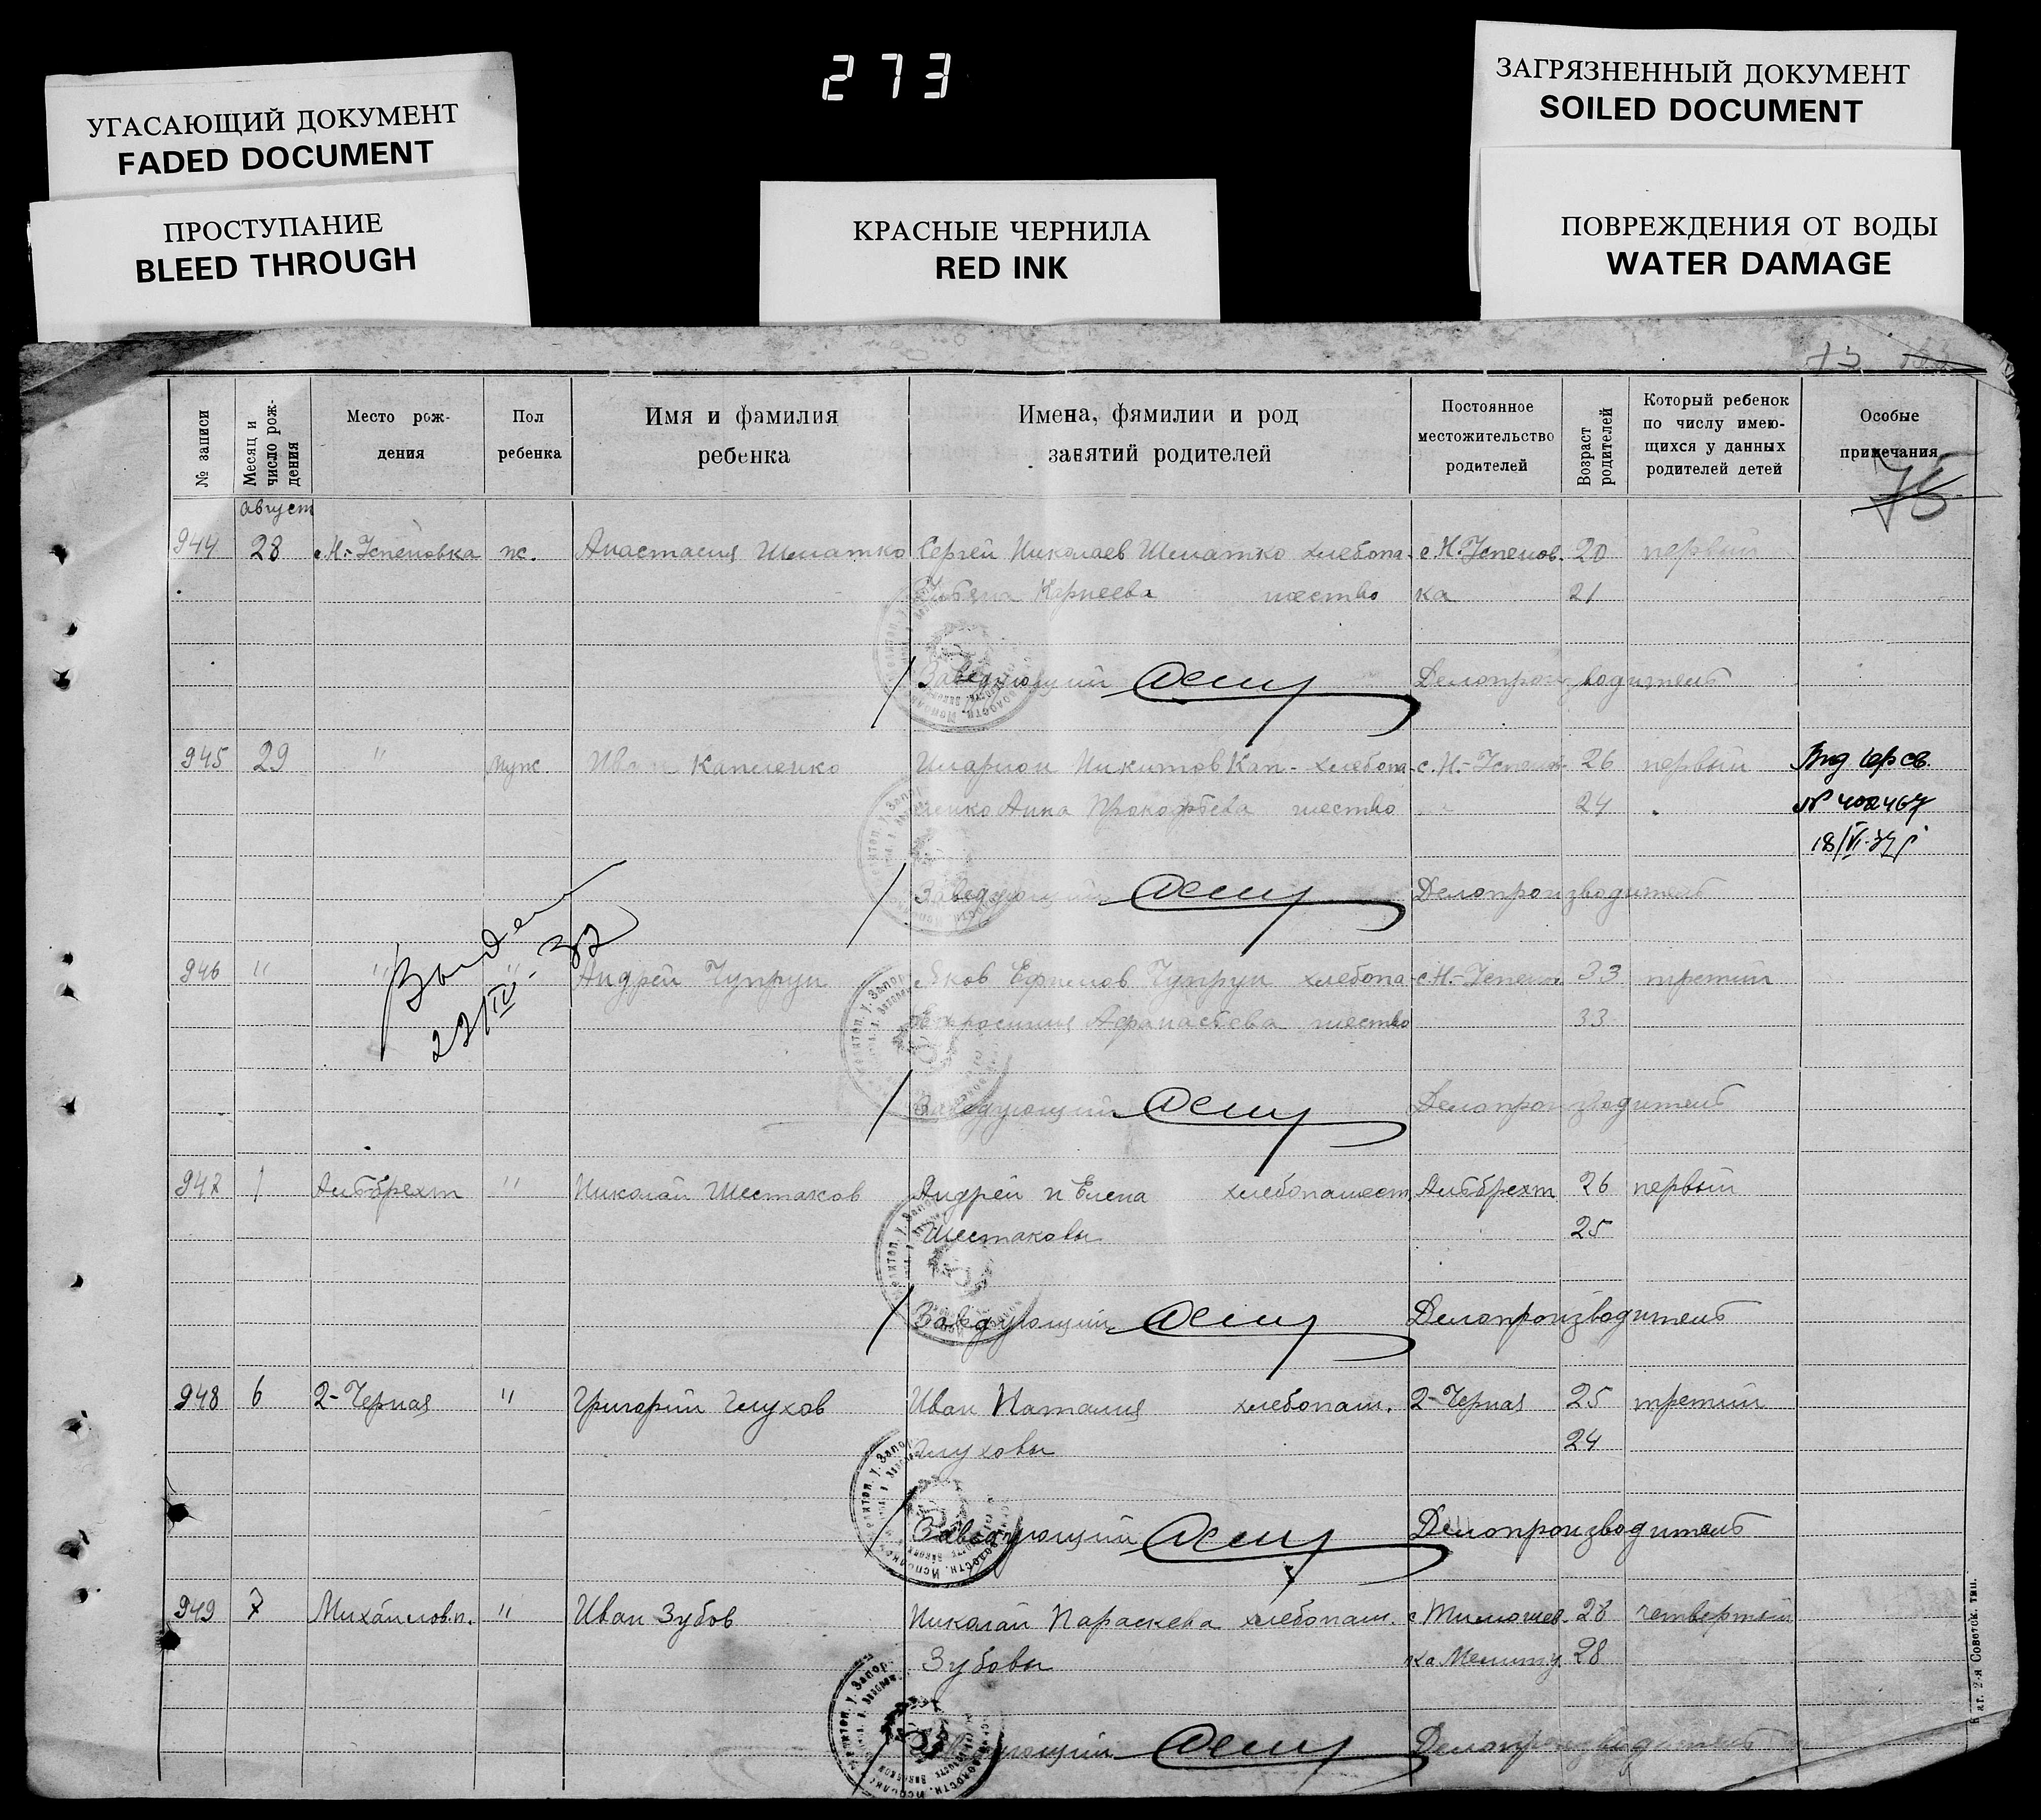 273
УГАСАЮЩИЙ ДОКУМЕНТ
FADED DOCUMENT
ПРОСТУПАНИЕ
BLEED THROUGH
КРАСНЫЕ ЧЕРНИЛА
RED INK
ЗАГРЯЗНЕННЫЙ ДОКУМЕНТ
SOILED DOCUMENT
ПОВРЕЖДЕНИЯ ОТ ВОДЫ
WATER DAMAGE
№ записи
Месяц и число рож-дения
Место рож-дения
Пол ребенка
Имя и фамилия ребенка
Имена, фямилии и род занятий родителей
Постоянное местожительство родителей
Возраст родителей
Который ребенок по числу имею-щихся у данных родителей детей
Особые примечания
75
август
944 28 с.Н.-Успеновка ж. Анастасия Шматко Сергей Николаев Шматко хлебопа- с Н.-Успенов- 20 первый
Корнеева шество ка 21
Заведующий Делопроизводитель
945 29 " муж. Иван Капленко Иларион Никитов Кап- хлебопа- с.Н.-Успенов- 26 первый
ленко Анна Прокофьева шество 24
№ 402467
18/VI-37
Заведующий Делопроизводитель
22/IV-32
946 " " " Андрей Чупрун Яков Ефимов Чупрун хлебопа- с Н.-Успенов. 33 третий
Афанасьева шество 33
Заведующий Делопроизводитель
947 1 Альбрехт " Николай Шестаков Андрей и Елена хлебопашест Альбрехт 26 первый
Шестаковы 25
Заведующий Делопроизводитель
948 6 2-Черная " Григорий Глухов Иван Наталия хлебопаш. 2-Черная 25 третий
Глуховы 24
Заведующий Делопроизводитель
949 7 Михайлов.п. " Иван Зубов Николай Параскева хлебопаш. с Тимошев- 28 четвертый
Зубовы ка Мелит.у. 28
Заведующий Делопроизводитель
2-я Советск. тип.